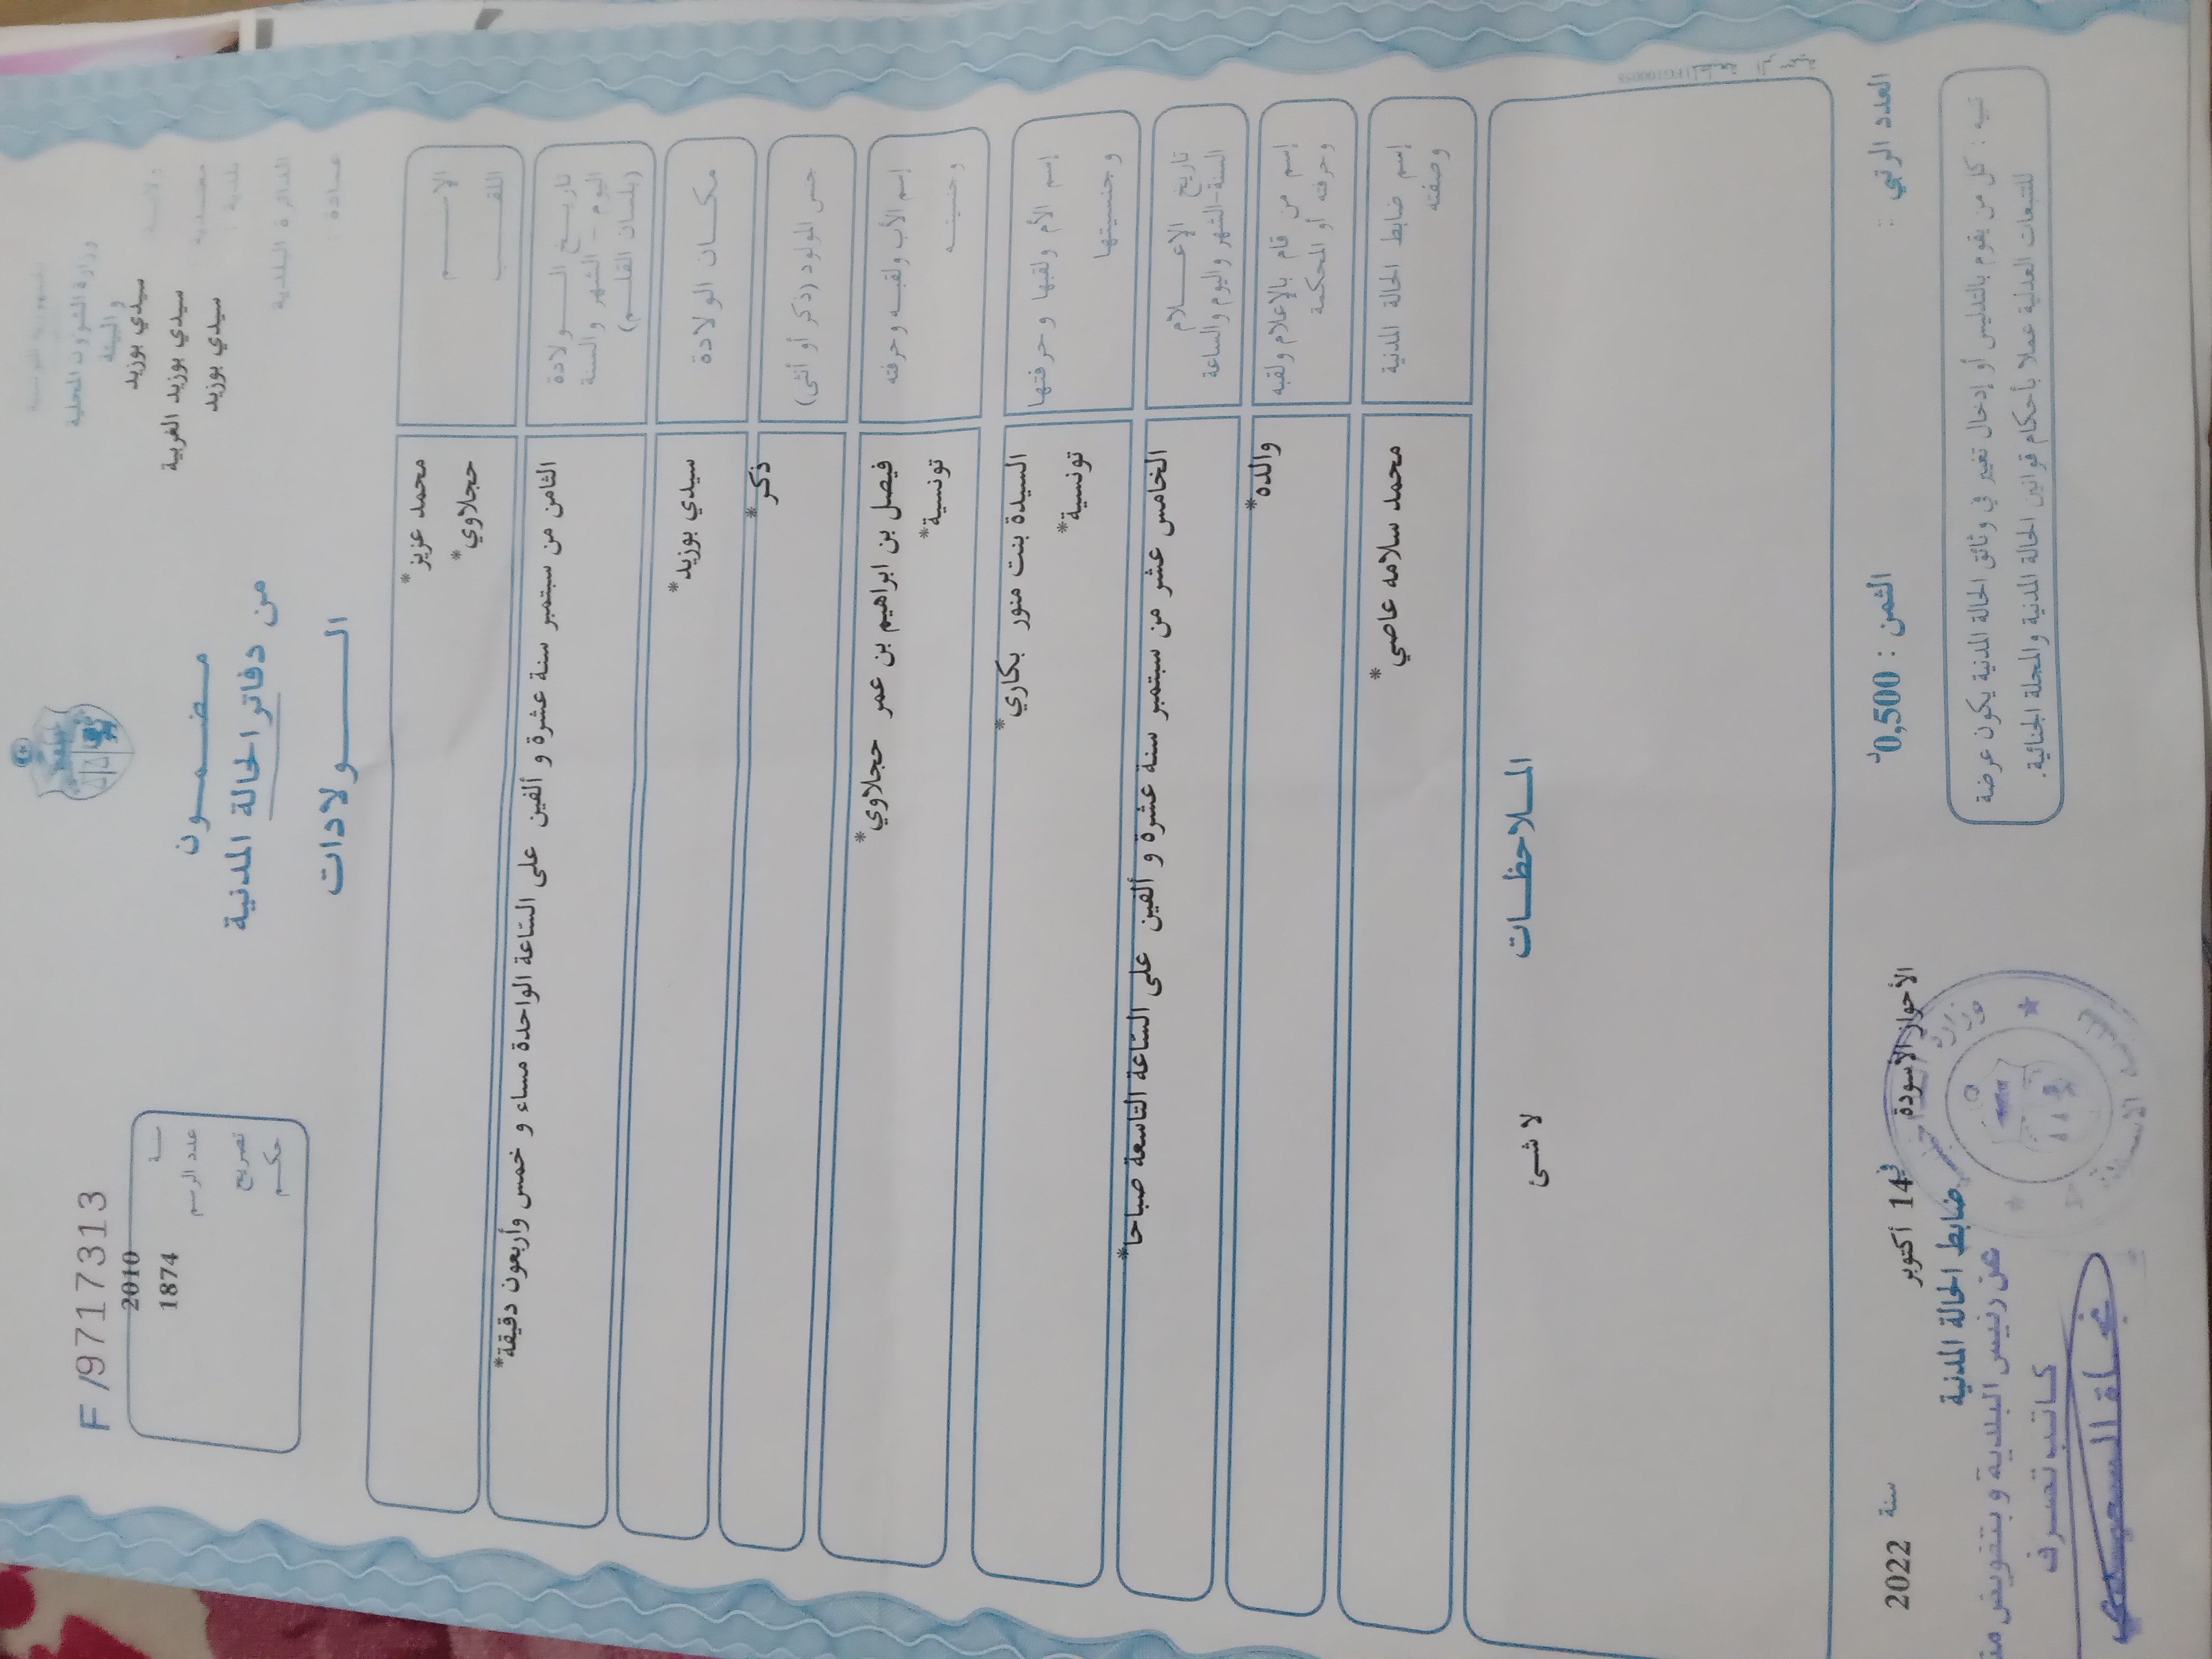 الجمهورية التونسية
وزارة الشؤون المحلية
والبيئة
ولاية سيدي بوزيد
معتمدية سيدي بوزيد الغربية
بلدية : سيدي بوزيد
الدائرة البلدية
عمادة :
مضمون
من دفاتر الحالة المدنية
الولادات
F /9717313
سنة 2010
عدد الرسم 1874
تصريح
حكم
الإسم محمد عزيز*
اللقب حجلاوي*
تاريخ الولادة
اليوم - الشهر والسنة
(بلسان القلم)
الثامن من سبتمبر سنة عشرة و ألفين على الساعة الواحدة مساء و خمس وأربعون دقيقة*
مكان الولادة سيدي بوزيد*
جنس المولود (ذكر أو أنثى) ذكر*
إسم الأب ولقبه وحرفته فيصل بن ابراهيم بن عمر حجلاوي*
وجنسيته تونسية*
إسم الأم ولقبها وحرفتها السيدة بنت منور بكاري*
وجنسيتها تونسية*
تاريخ الإعلام
السنة-الشهر واليوم والساعة
الخامس عشر من سبتمبر سنة عشرة و ألفين على الساعة التاسعة صباحا*
إسم من قام بالإعلام ولقبه
وحرفته أو المحكمة
والده*
إسم ضابط الحالة المدنية محمد سلامه عاصي*
وصفته
الملاحظات
لا شئ
العدد الرتبي :
الثمن : 0,500د
الأحواز الأسودة في 14 أكتوبر سنة 2022
ضابط الحالة المدنية
عن رئيس البلدية و بتفويض منه
كاتب تصرف
تنبيه : كل من يقوم بالتدليس أو إدخال تغيير في وثائق الحالة المدنية يكون عرضة
للتتبعات العدلية عملا بأحكام قوانين الحالة المدنية والمجلة الجنائية.